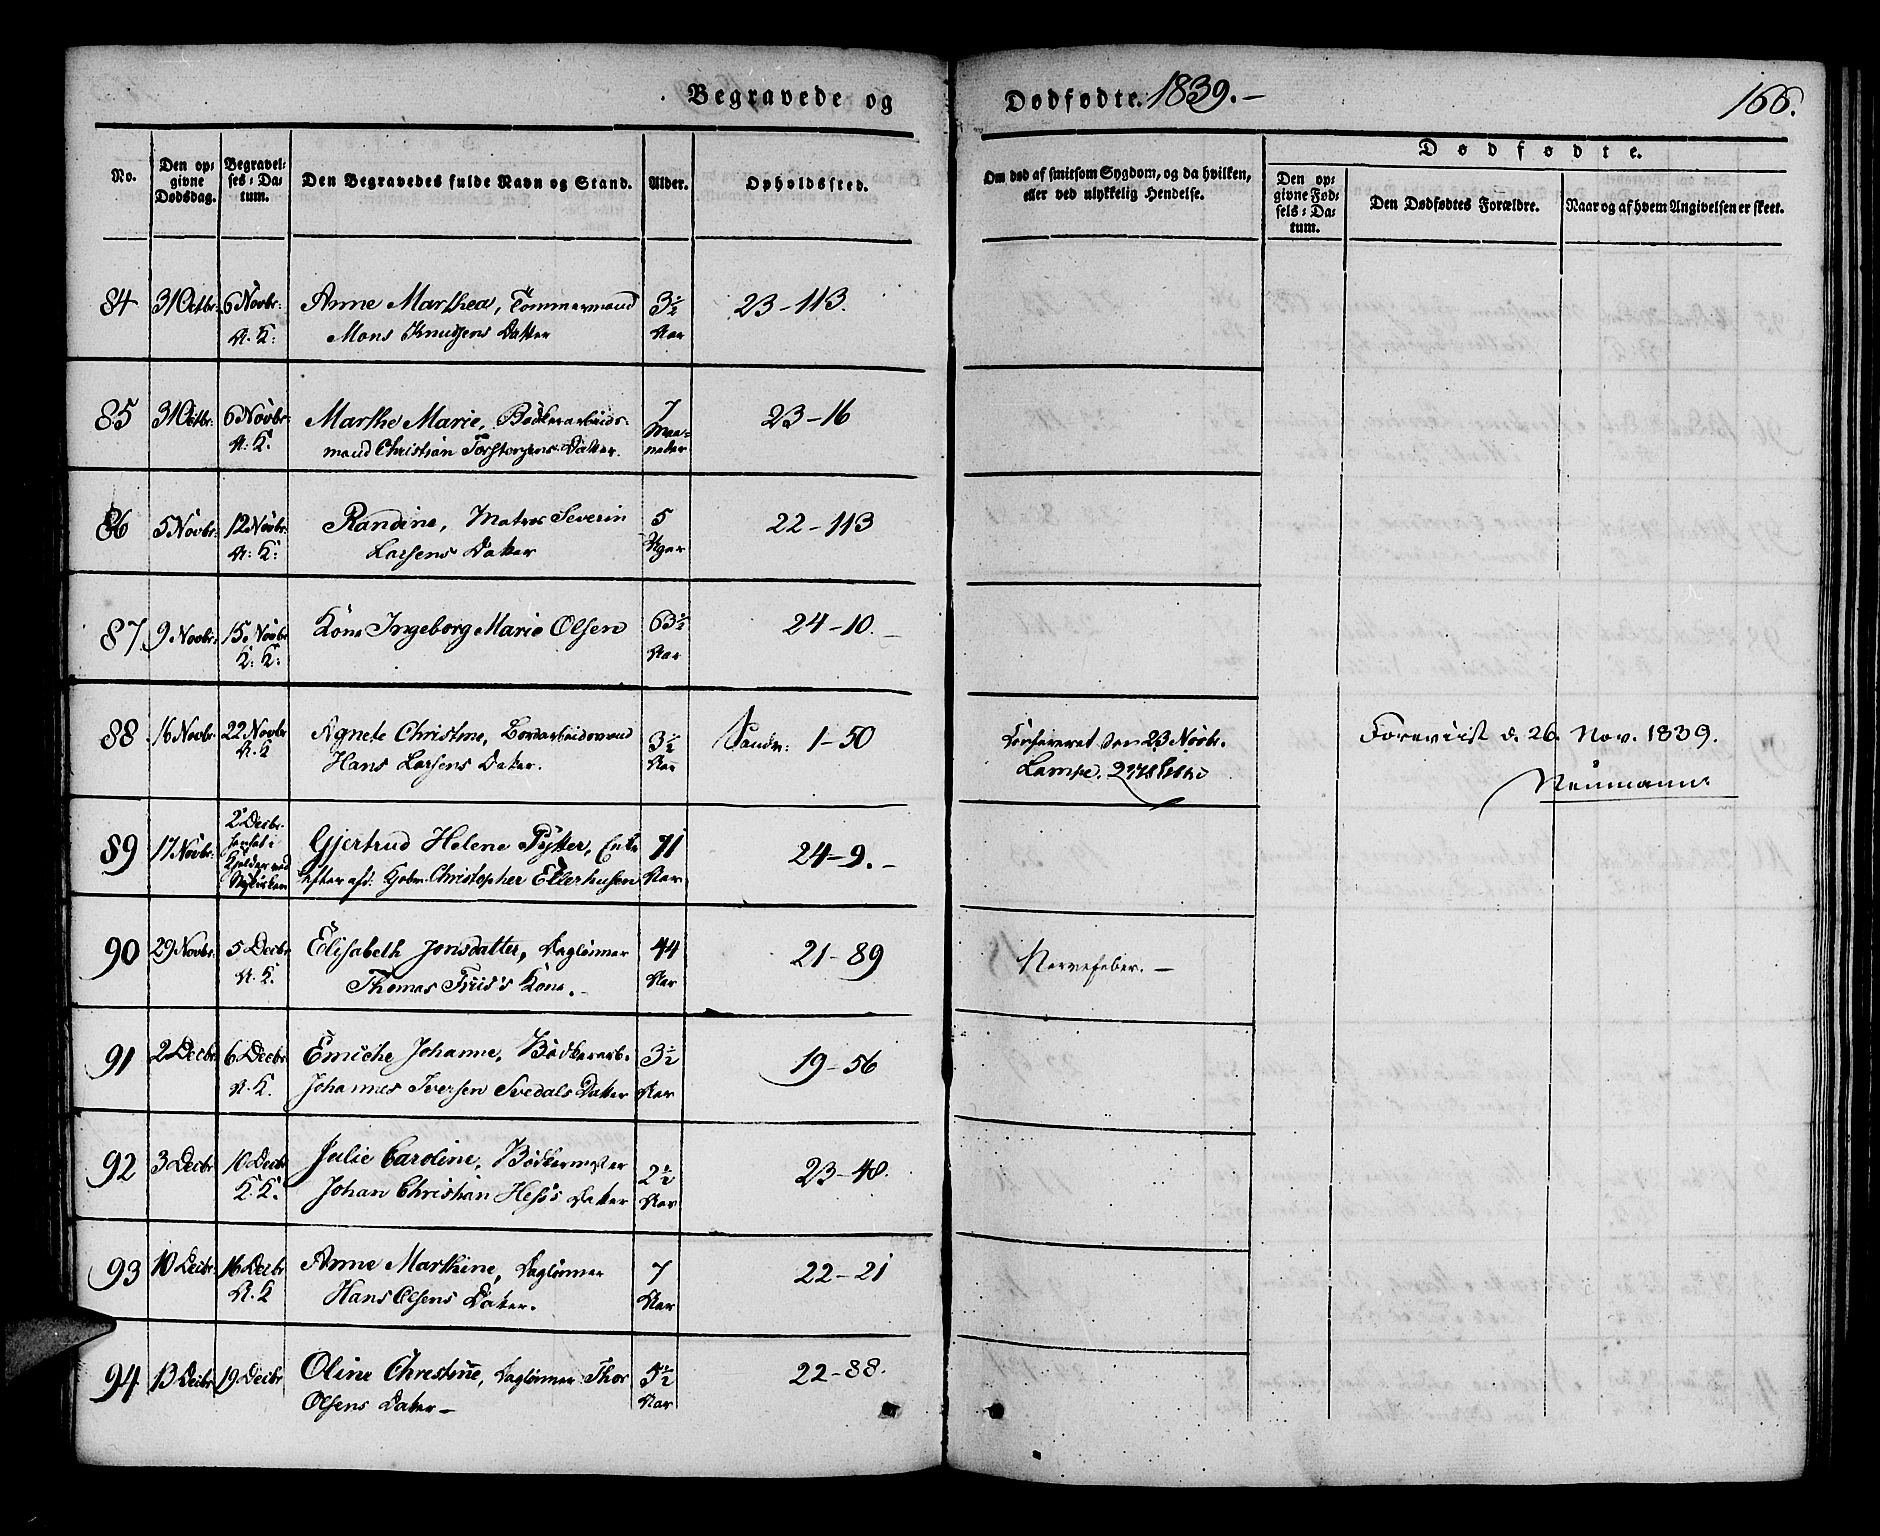 Begravede og
Dødfødte. 1839.-
166.
No.
Den op-
givne
Dødsdag.
Begravel-
ses-Da-
tum.
Den Begravedes fulde Navn og Stand.
Alder.
Opholdssted.
Om død af smitsom Sygdom, og da hvilken,
eller ved ulykkelig Hendelse.
Dødfødte.
Den op-
givne Fød-
sels-Da-
tum.
Den Dødfødtes Forældre.
Naar og af hvem Angivelsen er skeet.
84 31 Octbr: 6 Novbr: Anne Marthea, Tømmermand 3½ 23-113.
A. K: Mons Knutzens Datter Aar
85 31 Octbr: 6 Novbr: Marthe Marie, Bødkerarbeids- 7 23-16
A: K. mand Christian Torstensens Datter. Maa-
neder
86 5 Novbr: 12 Novbr: Randine, Matros Severin 5 22-113
A: K: Larsens Datter Uger
87. 9 Novbr: 15 Novbr Kone Ingeborg Marie Olsen 63½ 24-10.
K: K: Aar
88 16 Novbr. 22 Novbr Agnete Christine, Bordarbeidsmand 3½ Sandv: 1-50
A. K Hans Larsens Datter. Aar
Confereret den 23 Novbr.
Lampe.
Foreviist d. 26. Nov. 1839.
Neumann
89 17 Novbr: 2 Decbr. Gjertrud Helene Pytter, Enke 71 24-9.-
hensat i
Kjelder ved
Nykirken
efter afd: Kjøbm: Christopher Ellerhusen Aar
90 29 Novbr: 5 Decbr Elisabeth Jonsdatter, Daglønner 44 21-89
A. K. Thomas Friis's Kone. Aar
Nervefeber. -
91 2 Decbr. 6 Decbr Emiche Johanne, Bødkerarb. 3½ 19-56
A. K. Johannes Iversen Svedals Datter Aar
92 3 Decbr. 10 Decbr Julie Caroline, Bødkermester 2½ 23-48.
K. K. Johan Christian Hess's Datter Aar
93 10 Decbr. 16 Decbr Anne Marthine, Daglønner 7 22-21
A. K Hans Olsens Datter. Aar
94 13 Decbr 19 Decbr Oline Christine, Daglønner Thor 5½ 22-88.
Olsens Datter- Aar